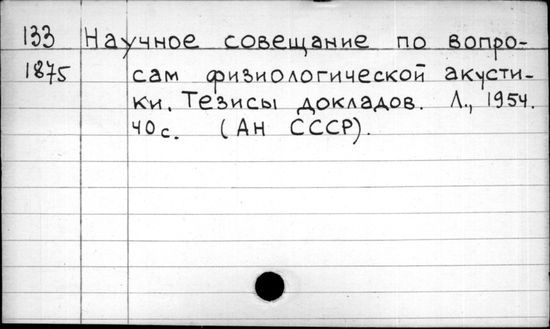 133 Научное совещание по вопро-
1875 сам физиологической акусти-
ки. Тезисы докладов. Л., 1954.
40 с. (Ан СССР).